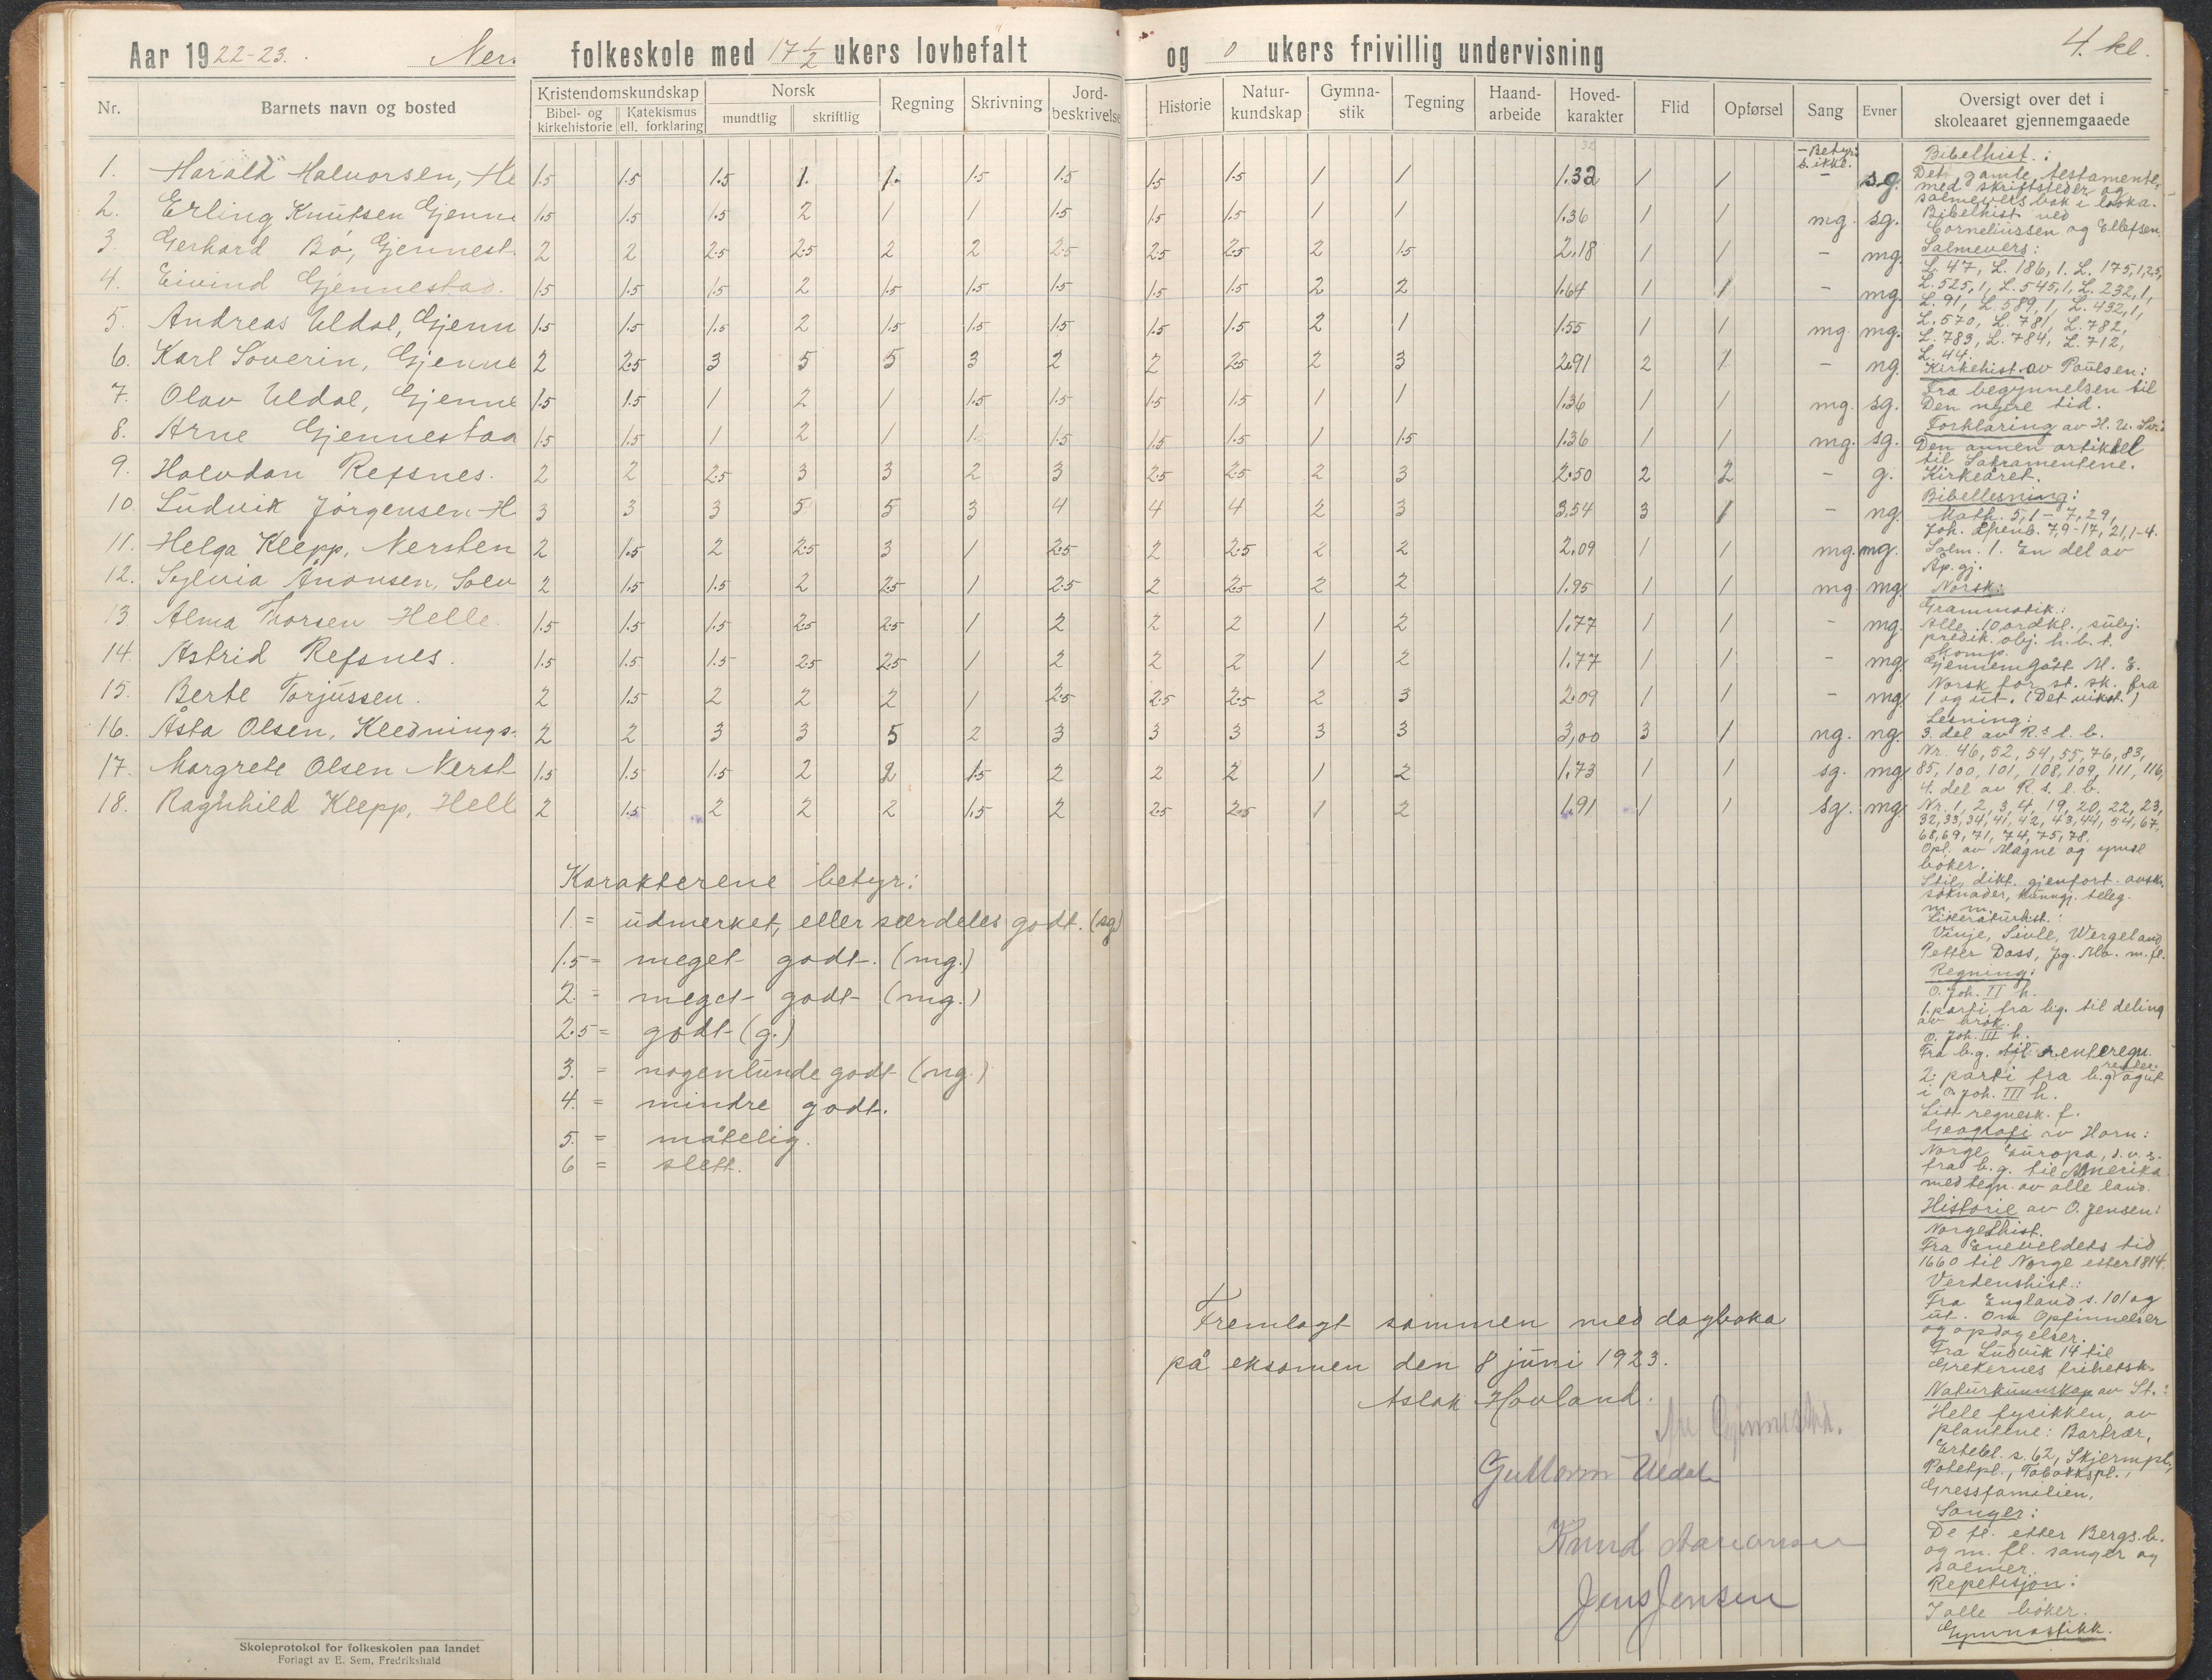 Aar 1922-23. Ner. folkeskole med 17 1/2 ukers lovbefalt og 0 ukers frivillig undervisning 4. kl.
Nr. Barnets navn og bosted Kristendomskundskap Bibel- og kirkehistorie Katekismus ell. forklaring Norsk mundtlig skriftlig Regning Skrivning Jord-beskrivelse Historie Natur-kundskap Gymna-stik Tegning Haand-arbeide Hoved-karakter Flid Opførsel Sang Evner Oversigt over det i skoleaaret gjennemgaaede
- Betyr: s. ikke.
1. Harald Halvorsen, He 1.5 1.5 1.5 1. 1. 1.5 1.5 1.5 1.5 1 1 1.32 1 1 - sg.
2. Erling Knutsen Gjenne 1.5 1.5 1.5 2 1 1 1.5 1.5 1.5 1 1 1.36 1 1 mg. sg.
3. Gerhard Bø, Gjennest. 2 2 2.5 2.5 2 2 2.5 2.5 2.5 2 1.5 2.18 1 1 - mg.
4. Eivind Gjennestad. 1.5 1.5 1.5 2 1.5 1.5 1.5 1.5 1.5 2 2 1.64 1 1 - mg.
5. Andreas Uldal, Gjenn 1.5 1.5 1.5 2 1.5 1.5 1.5 1.5 1.5 2 1 1.55 1 1 mg. mg.
6. Karl Soverin, Gjenne 2 2.5 3 5 5 3 2 2 2.5 2 3 2.91 2 1 - ng.
7. Olav Uldal, Gjenne 1.5 1.5 1 2 1 1.5 1.5 1.5 1.5 1 1 1.36 1 1 mg. sg.
8. Arne Gjennestad 1.5 1.5 1 2 1 1. 1.5 1.5 1.5 1 1.5 1.36 1 1 mg. sg.
9. Halvdan Refsnes. 2 2 2.5 3 3 2 3 2.5 2.5 2 3 2.50 2 2 - g.
10. Ludvik Jørgensen H. 3 3 3 5 5 3 4 4 4 2 3 3.54 3 1 - ng.
11. Helga Klepp, Nersten 2 1.5 2 2.5 3 1 2.5 2 2.5 2 2 2.09 1 1 mg. mg.
12. Sylvia Ånonsen, Solv 2 1.5 1.5 2 2.5 1 2.5 2 2.5 2 2 1.95 1 1 mg. mg.
13. Alma Thorsen Helle. 1.5 1.5 1.5 2.5 2.5 1 2 2 2 1 2 1.77 1 1 - mg.
14. Astrid Refsnes. 1.5 1.5 1.5 2.5 2.5 1 2 2 2 1 2 1.77 1 1 - mg.
15. Berte Torjussen. 2 1.5 2 2 2 1 2.5 2.5 2.5 2 3 2.09 1 1 - mg.
16. Åsta Olsen, Klednings- 2 2 3 3 5 2 3 3 3 3 3 3,00 3 1 ng. ng.
17. Margrete Olsen Nerst 1.5 1.5 1.5 2 2 1.5 2 2 2 1 2 1.73 1 1 sg. mg.
18. Ragnhild Klepp, Hell 2 1.5 2 2 2 1.5 2 2.5 2.5 1 2 1.91 1 1 sg. mg.
Karakterene betyr:
1. = udmerket, eller særdeles godt. (sg)
1.5 = meget godt. (mg.)
2. = meget godt (mg.)
2.5 = godt (g.)
3. = nogenlunde godt (ng.)
4. = mindre godt.
5. = måtelig.
6 = slett.
Fremlagt sammen med dagboka
på eksamen den 8 juni 1923.
Aslak Hovland.
Gjennestad.
Guttorm Uldal
Knud
Jens Jensen
Bibelhist.:
Det gamle testamente,
med skriftsteder og
salmevers bak i boka.
Bibelhist ved
Corneliussen og Ellefsen.
Salmevers:
L. 47, L. 186, 1. L. 175,1,25,
L. 525,1, L. 545,1, L. 232,1,
L. 91, L. 589,1, L. 432,1,
L. 570, L. 781, L. 782,
L. 783, L. 784, L. 712,
L. 44.
Kirkehist. av Paulsen:
Fra begynnelsen til
Den nyere tid.
Forklaring av H. U. Sv.:
Den annen artikkel
til Sakramentene.
Kirkeåret.
Bibellesning:
Math. 5,1-7,29,
Joh. åpenb. 7,9-17, 21,1-4.
Salm. 1. En del av
Ap. gj.
Norsk:
Grammatik:
Alle 10 ordkl., subj.
predik. obj. h. b. t.
Komp.
Gjennemgått M. E.
Norsk for st. sk. fra
1 og ut. (Det vikst.)
Lesning:
3. del av R.s l. b.
Nr. 46, 52, 54, 55, 76, 83,
85, 100, 101, 108, 109, 111, 116,
4. del av R. s. l. b.
Nr. 1, 2, 3, 4, 19, 20, 22, 23,
32, 33, 34, 41, 42, 43, 44, 54, 67,
68, 69, 71, 74, 75, 78.
Opl. av Magne og ymse
bøker.
Stil, dikt. gjenfort. avsk.
søknader, kunngj. teleg.
m. m.
Literaturhist.:
Vinje, Sivle, Wergeland,
Petter Dass, Jg. Mo. m. fl.
Regning:
O. Joh. II h.
1. parti fra lig. til deling
av brøk.
O. Joh. III h.
Fra b.g. til renteregn.
2. parti fra b.g. og ut
i O. Joh. III h.
Litt regnesk. f.
Geografi av Horn:
Norge, Europa, d. v. s.
fra b. g. til Amerika
med tegn. av alle land.
Historie av O. Jensen:
Norgeshist.
Fra Eneveldets tid
1660 til Norge etter 1814.
Verdenshist.:
Fra England s. 101 og
ut. Om Opfinnelser
og opdagelser.
Fra Ludvik 14 til
Grekernes frihetsk.
Naturkunnskap av St.:
Hele fysikken, av
plantene: Bartrær,
Ertebl. s. 62, Skjermpl.,
Potetpl., Tobakkspl.,
Gressfamilien,
Sanger:
De fl. etter Bergs. b.
og m. fl. sanger og
salmer.
Repetisjon:
I alle bøker.
Gymnastikk.
Skoleprotokol for folkeskolen paa landet
Forlagt av E. Sem, Fredrikshald